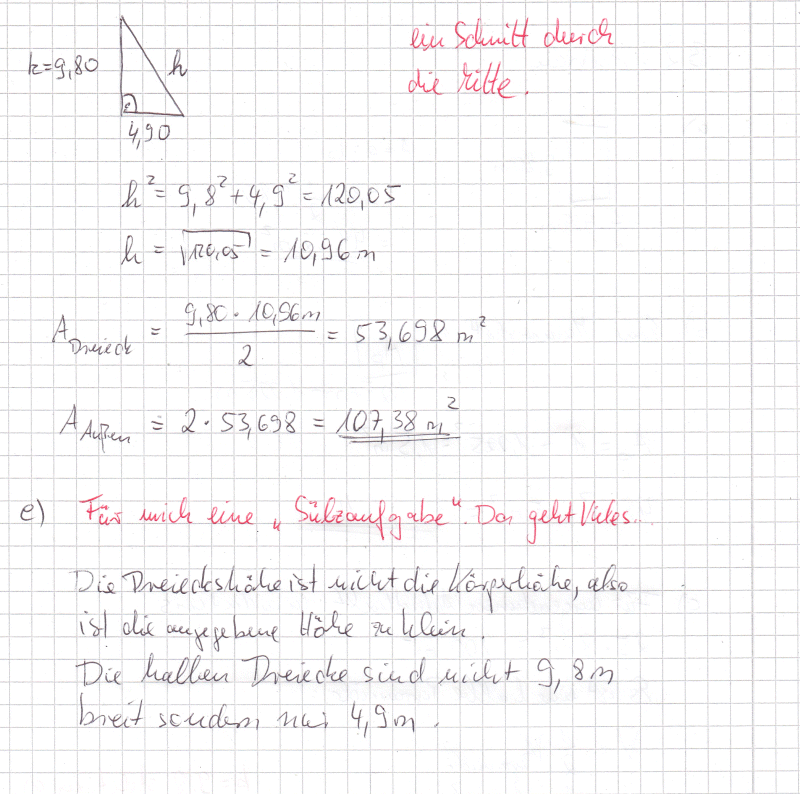 ein Schnitt durch
die Mitte.
k=9,80
h
4,90
h² = 9,8² + 4,9² = 120,05
h = √120,05 = 10,96 m
A Dreieck = 9,80 · 10,96m / 2 = 53,698 m²
A Außen = 2 · 53,698 = 107,38 m²
e) Für mich eine „Sülzaufgabe". Da geht Vieles...
Die Dreieckshöhe ist nicht die Körperhöhe, also
ist die angegebene Höhe zu klein.
Die halben Dreiecke sind nicht 9,8m
breit sondern nur 4,9m.